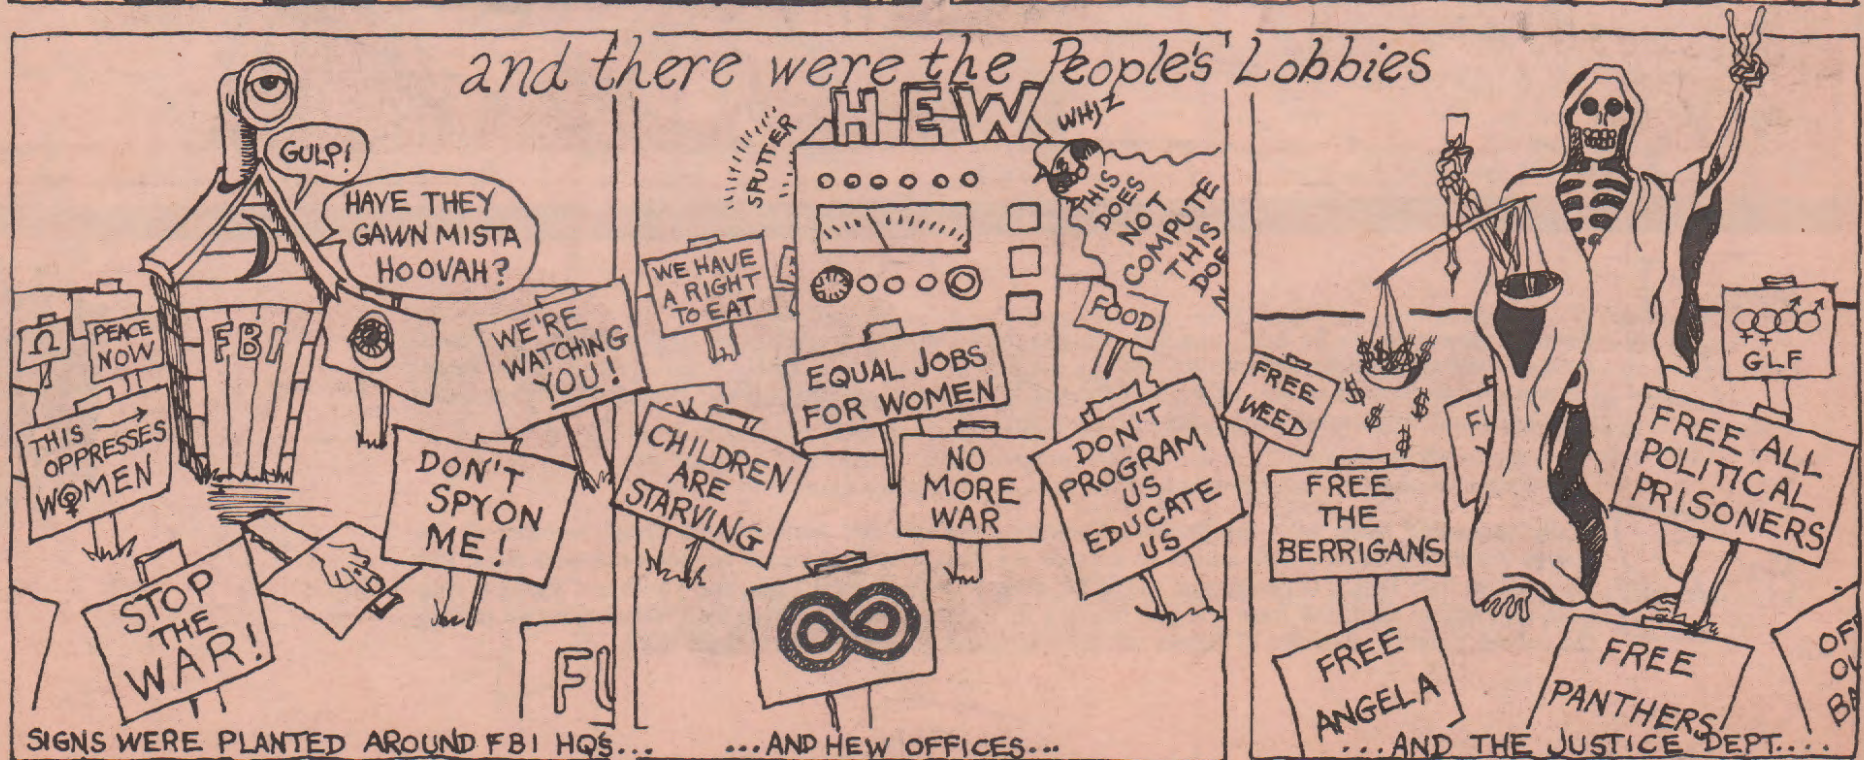 and there were the People's Lobbies
GULP!
HAVE THEY
GAWN MISTA
HOOVAH?
FBI
Ω
PEACE
NOW
THIS →
OPPRESSES
WOMEN
WE'RE
WATCHING
YOU!
DON'T
SPY ON
ME!
STOP
THE
WAR!
FU
SIGNS WERE PLANTED AROUND FBI HQ'S...
HEW
SPUTTER
WHJZ
THIS
DOES
NOT
COMPUTE
THIS
DOE
WE HAVE
A RIGHT
TO EAT
FOOD
EQUAL JOBS
FOR WOMEN
CHILDREN
ARE
STARVING
NO
MORE
WAR
DON'T
PROGRAM
US
EDUCATE
US
...AND HEW OFFICES...
$ $ $ $ $
FREE
WEED
FU
GLF
FREE ALL
POLITICAL
PRISONERS
FREE
THE
BERRIGANS
FREE
ANGELA
FREE
PANTHERS!
OF
OU
BA
...AND THE JUSTICE DEPT....